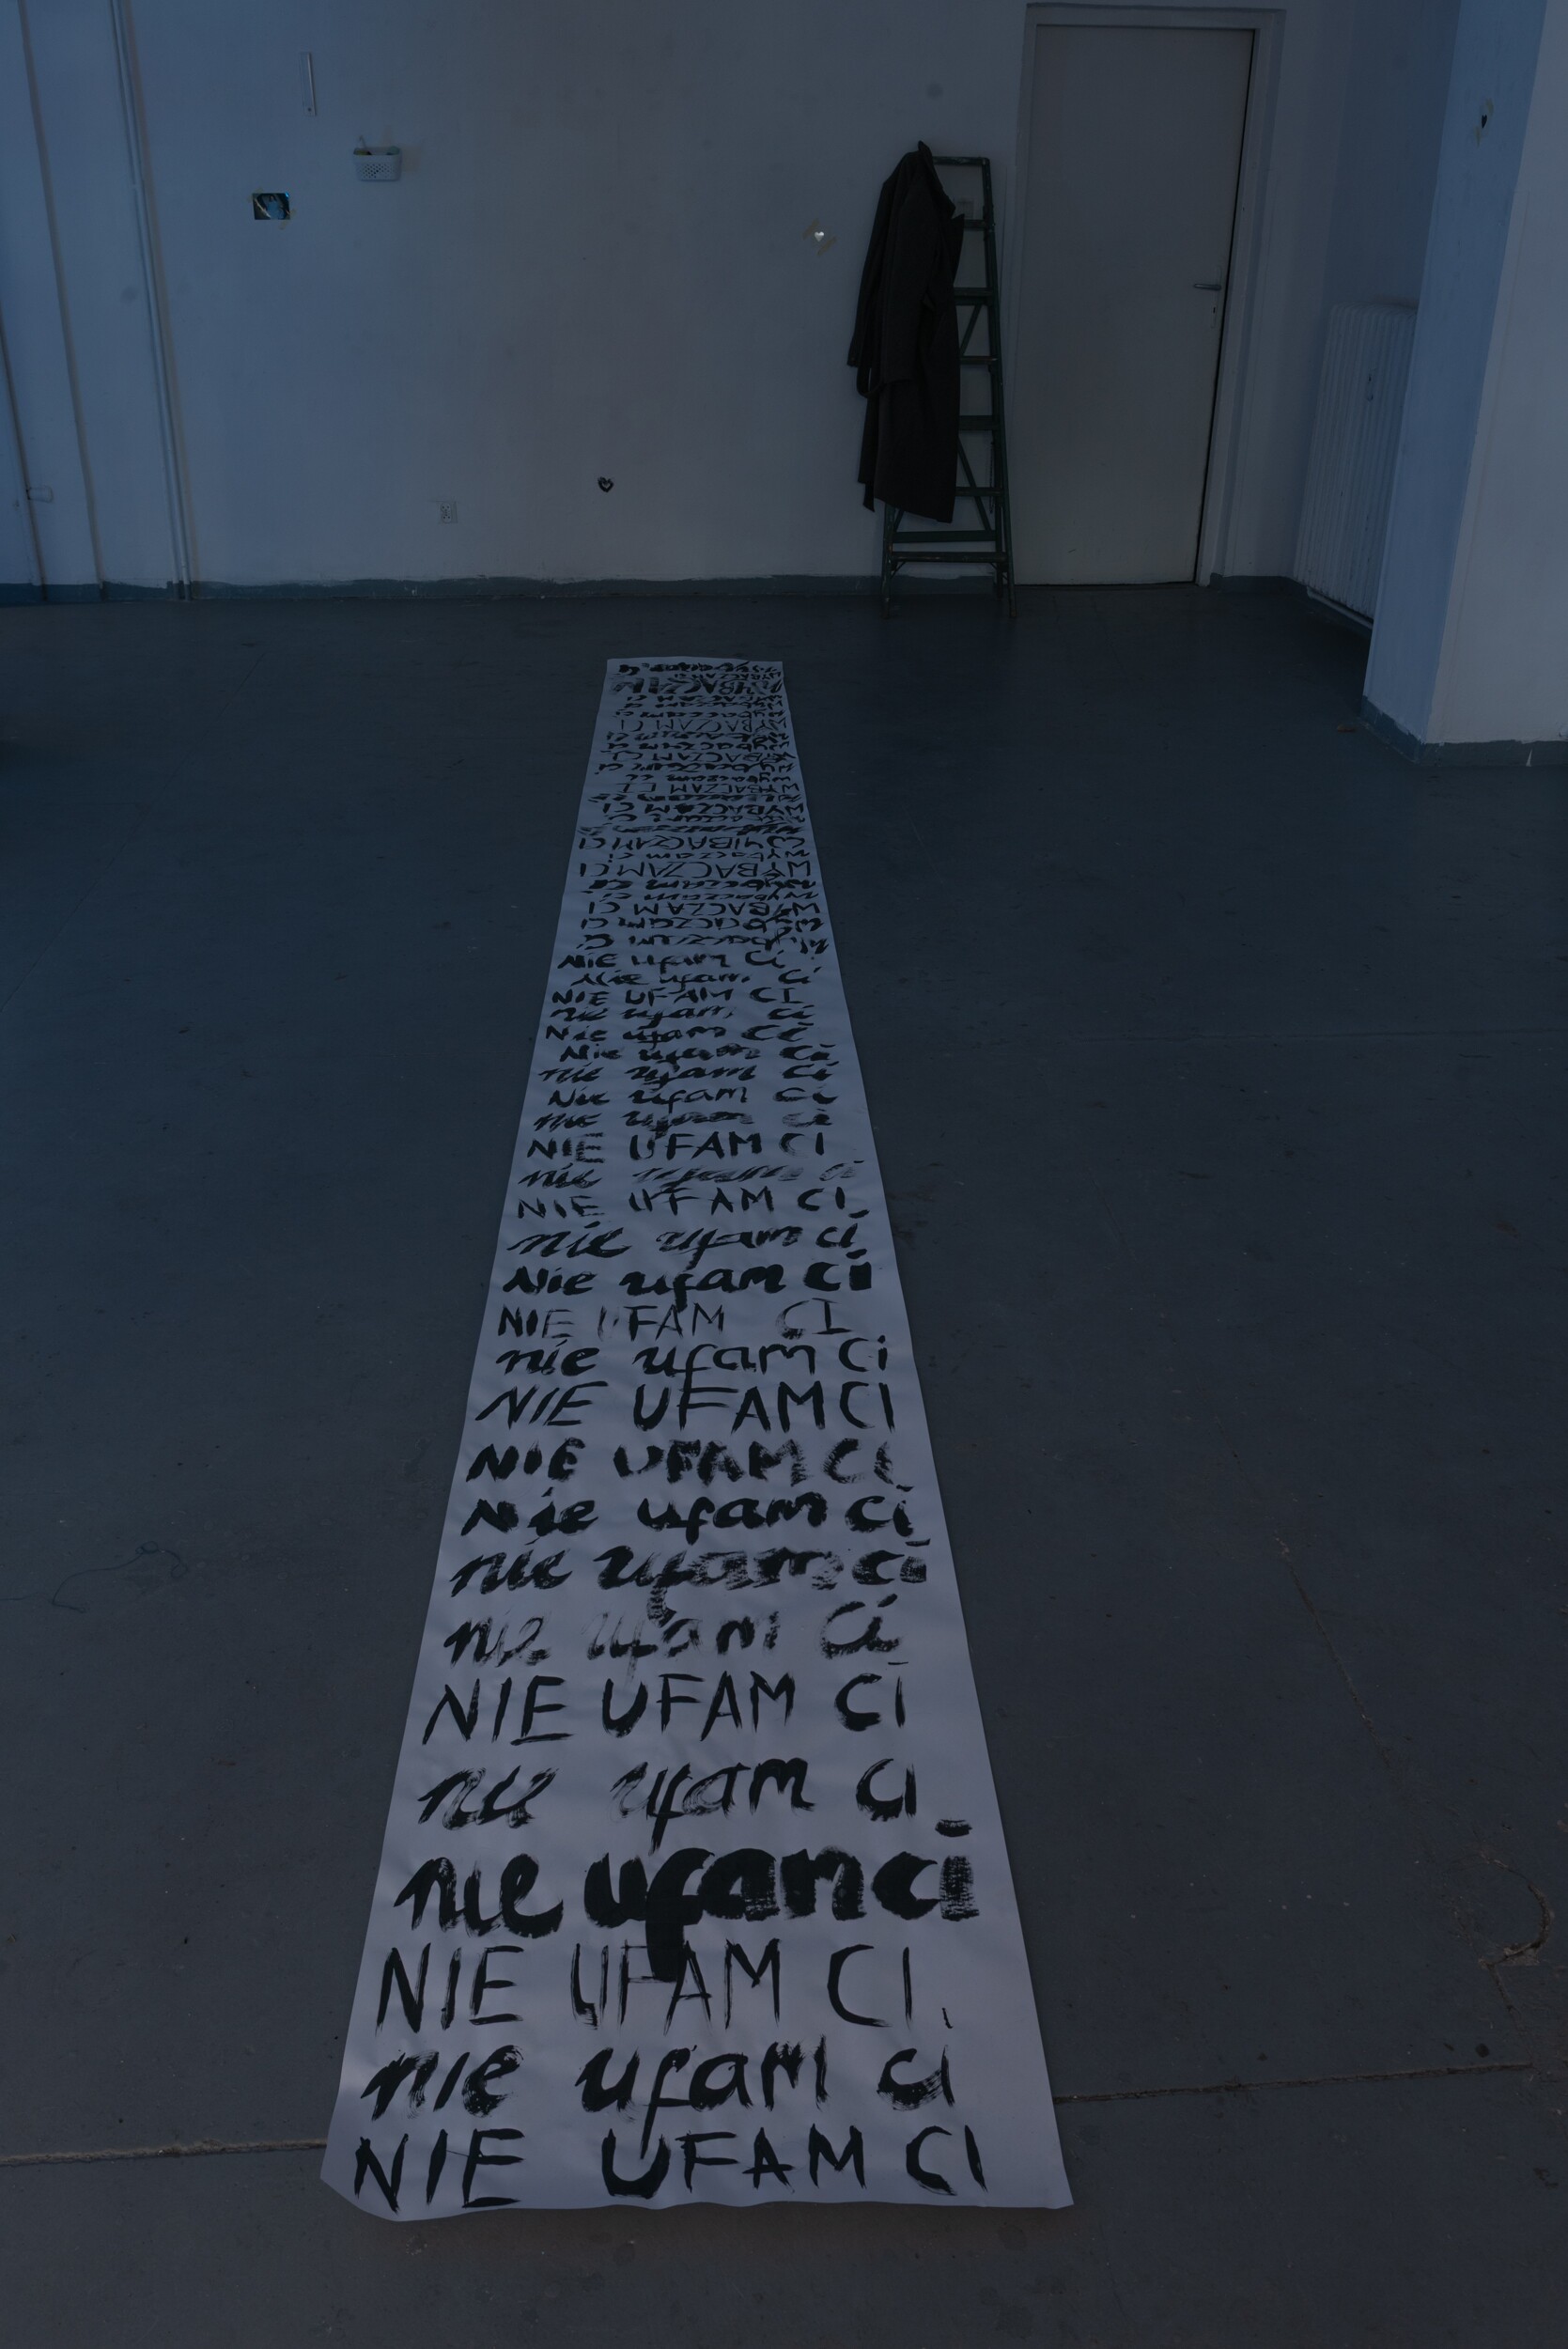 WYBACZAM
WYBACZAM CI
wybaczam ci
wybaczam ci
WYBACZAM CI
wybaczam ci
wybaczam ci
WYBACZAM CI
wybaczam ci
wybaczam ci
WYBACZAM CI
wybaczam ci
WYBACZAM CI
wybaczam ci
WYBACZAM CI
wybaczam ci
WYBACZAM CI
wybaczam ci
wybaczam ci
WYBACZAM CI
wybaczam ci
wybaczam ci
Nie ufam Ci
Nie ufam ci
NIE UFAM CI
nie ufam ci
Nie ufam Ci
Nie ufam Ci
nie ufam ci
Nie ufam Ci
nie ufam ci
NIE UFAM CI
nie ufam ci
NIE UFAM CI
nie ufam ci
Nie ufam ci
NIE UFAM CI
nie ufam Ci
NIE UFAM CI
NIE UFAM Ci
Nie ufam ci
nie ufam ci
nie ufam Ci
NIE UFAM Ci
nie ufam ci
nie ufam ci
NIE UFAM CI
nie ufam ci
NIE UFAM CI